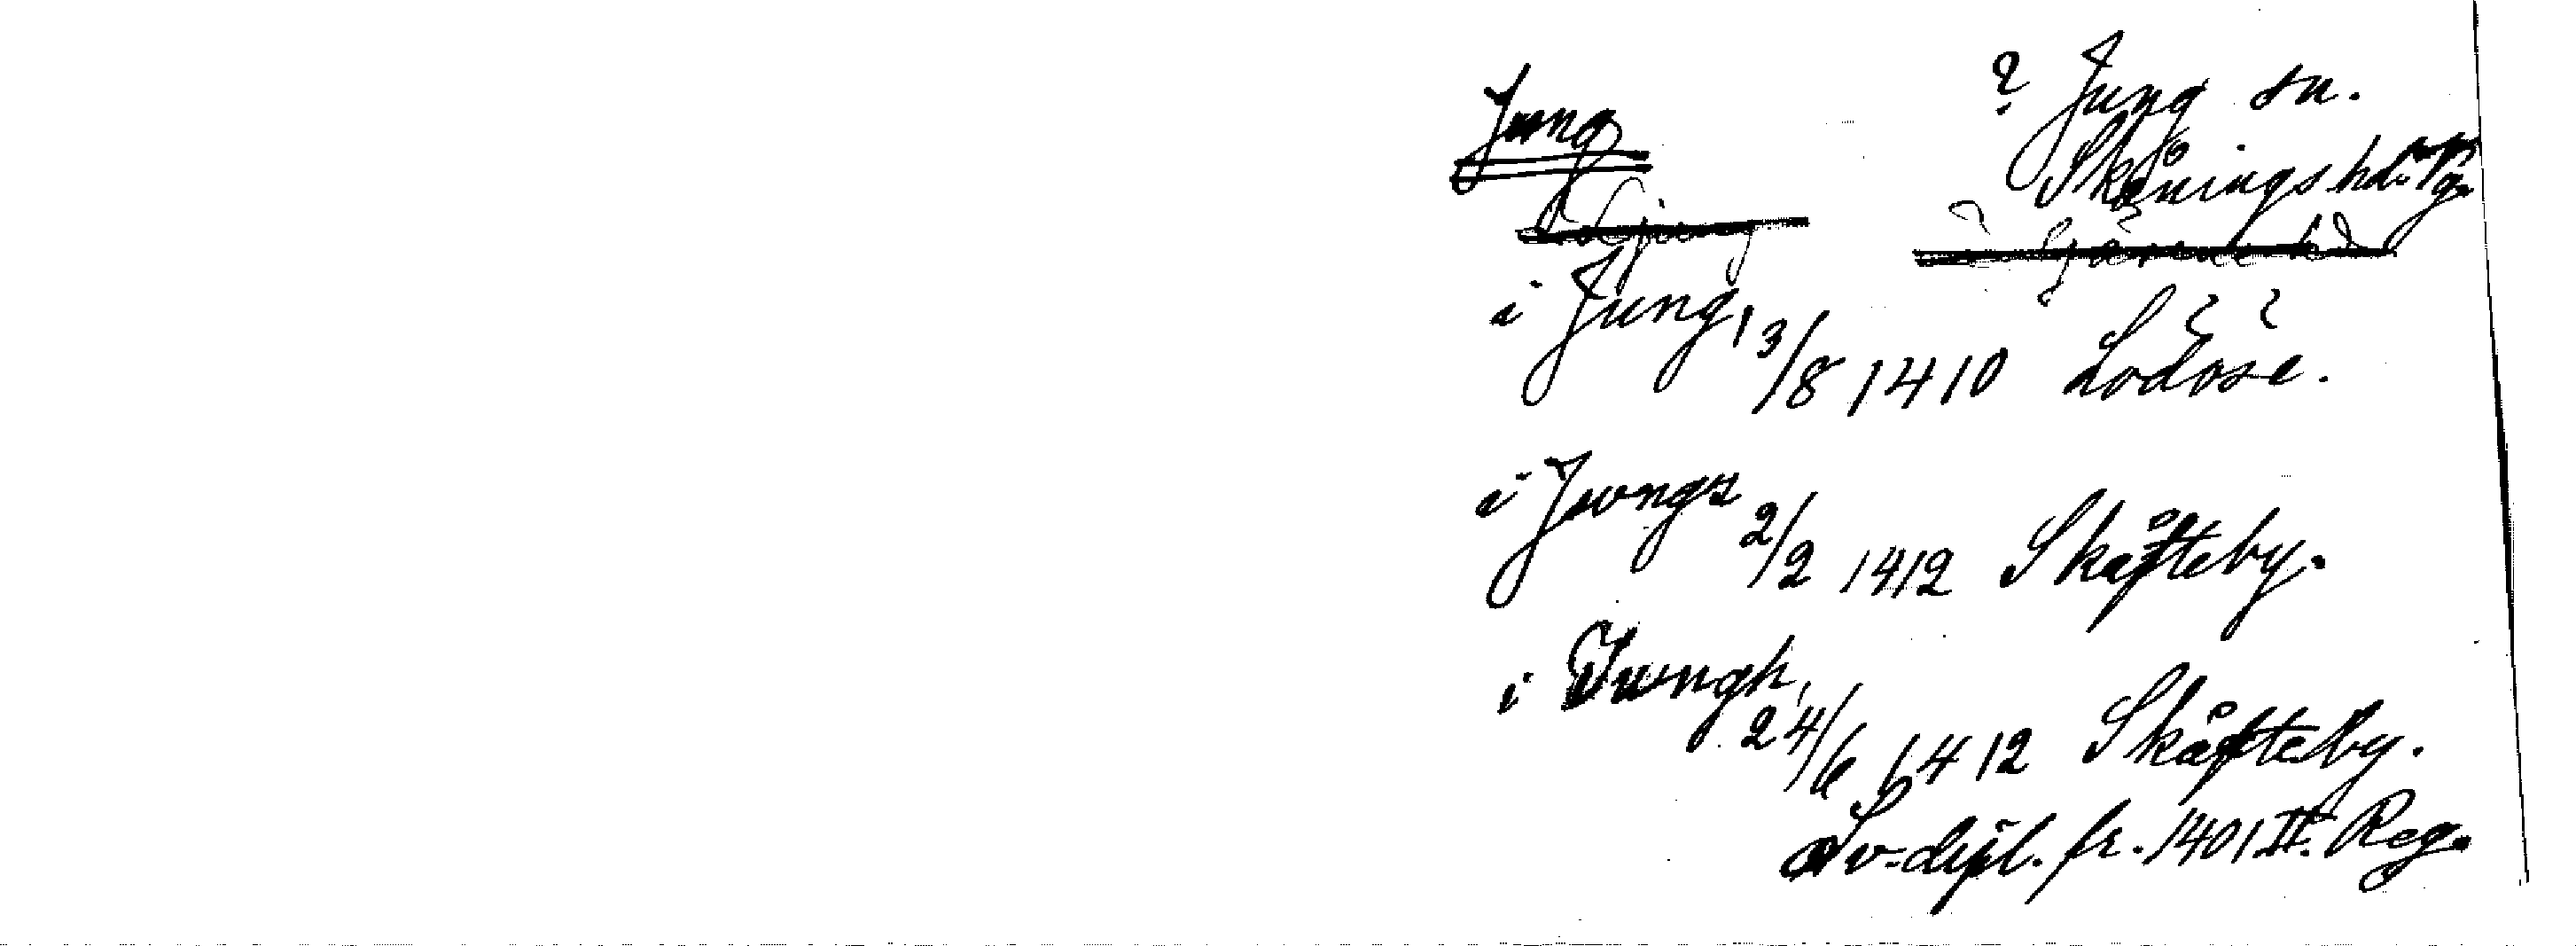 Jung
? Jung sn.
Skånings hd. Vg.
i Jung 13/8 1410 Lödöse.
i Jwngx 2/2 1412 Skåfteby.
i Jwngh 24/6 1412 Skåfteby.
Sv. dipl. fr. 1401 II. Reg.